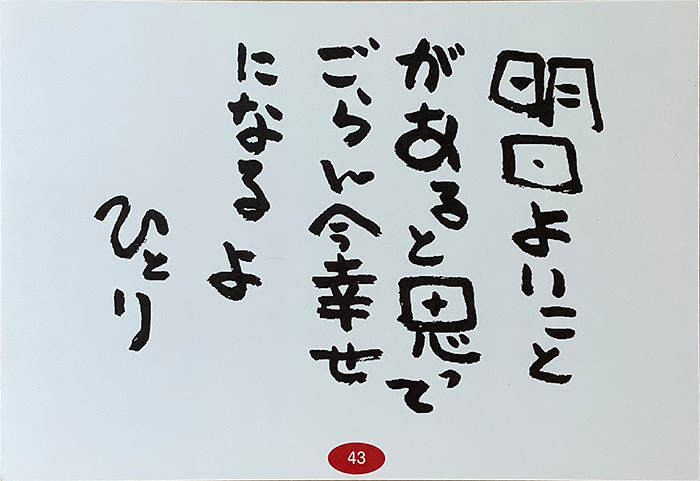 明日よいこと
があると思って
ごらん今幸せ
になるよ
ひとり
43